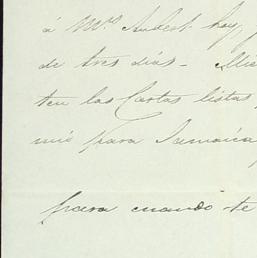 á Mrs Aubert hoy,
de tres días - Mis
ten las Cartas listas
mis para Jamaica
para cuando te